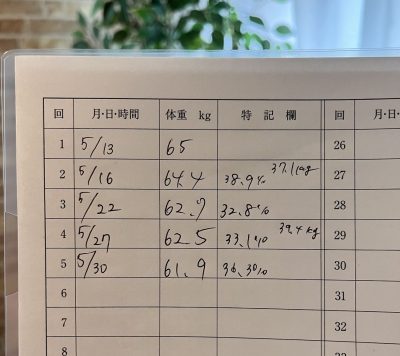 回 月・日・時間 体重 kg 特記欄 回 月・日
1 5/13 65 26
2 5/16 64.4 38.9% 37.1kg 27
3 5/22 62.7 32.8% 28
4 5/27 62.5 33.1% 39.4kg 29
5 5/30 61.9 36.30% 30
6 31
7 32
8 33